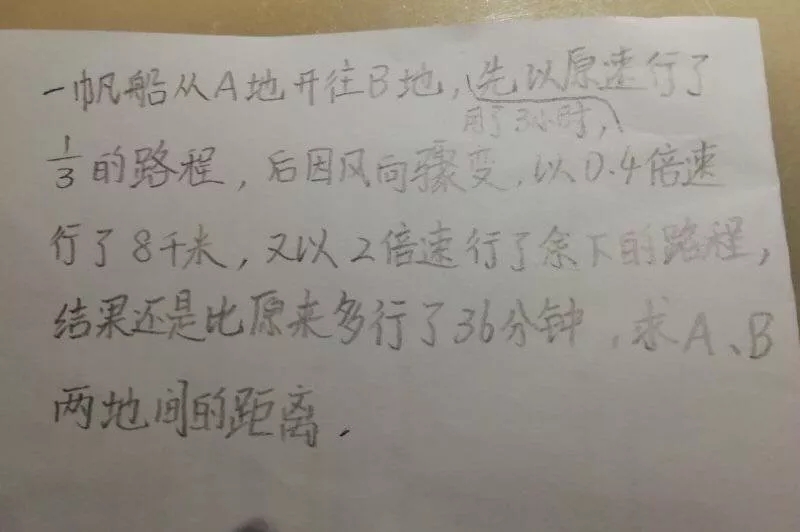 一帆船从A地开往B地,先以原速行了
用了3小时,
1/3的路程,后因风向骤变,以0.4倍速
行了8千米,又以2倍速行了余下的路程,
结果还是比原来多行了36分钟,求A、B
两地间的距离.